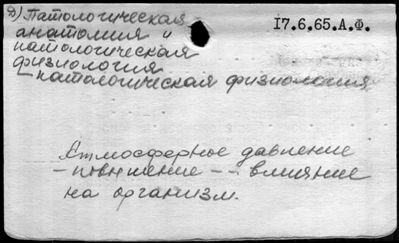 Д) Патологическая
анатомия и
патологическая
физиология
– патологическая физиология
17.6.65.А.Ф.
Атмосферное давление
– повышение – – влияние
на организм.